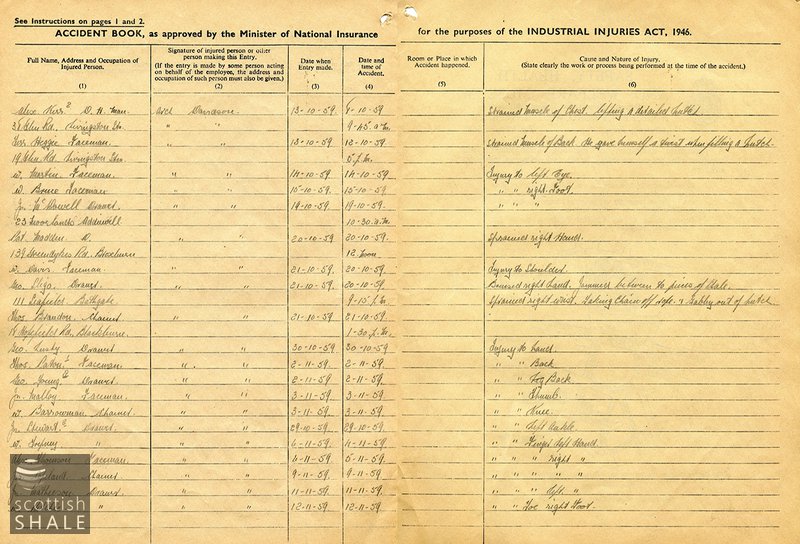 See Instructions on pages 1 and 2.
ACCIDENT BOOK, as approved by the Minister of National Insurance for the purposes of the INDUSTRIAL INJURIES ACT, 1946.
Full Name, Address and Occupation of Injured Person.
(1)
Signature of injured person or other person making this Entry.
(If the entry is made by some person acting on behalf of the employee, the address and occupation of such person must also be given.)
(2)
Date when Entry made.
(3)
Date and time of Accident.
(4)
Room or Place in which Accident happened.
(5)
Cause and Nature of Injury.
(State clearly the work or process being performed at the time of the accident.)
(6)
Alex. Kerr D. H. Man. Arch Davidson 13-10-59 9-10-59 Strained Muscle of Chest. lifting a derailed hutch
38 Glen Rd, Livingston Stn. " " 9-45 a.m.
Heggie Faceman " " 13-10-59 12-10-59 Strained Muscle of Back He gave himself a twist when filling a hutch.
19 Glen Rd, Livingston Stn 5 p.m.
W. Martin Faceman. " " 14-10-59 14-10-59 Injury to left Eye.
W. Faceman " " 15-10-59 15-10-59 " " right Foot
Jn. McDowell Drawer. " " 19-10-59 19-10-59. " " "
23 Addiewell 10-30 a.m.
Pat. Madden D. " " 20-10-59 20-10-59. Sprained right Hand.
139 Greendykes Rd. Broxburn 12 Noon
W. Davis. Faceman. " " 21-10-59. 20-10-59. Injury to Shoulder
Geo. Drawer " " 21-10-59. 20-10-59 Bruised right hand. Jammed between two pieces of Shale.
111 Seafield Bathgate 9-15 p.m. Sprained right wrist. Taking Chain off rope. & out of hutch.
Thos. Brandon. Chainer " " 21-10-59 21-10-59.
Rd, Blackburn. 1-30 p.m.
Geo. Lusty Drawer " " 30-10-59 30-10-59 Injury to hand.
Thos. Paton Faceman " . " 2-11-59. 2-11-59. " " Back
Geo Young Drawer " " 2-11-59 2-11-59. " " Leg Back
Jn. Malloy Faceman. " " 3-11-59. 3-11-59. " " Thumb.
W. Barrowman Chainer " " 3-11-59. 3-11-59. " " Knee.
Jn. Stewart Drawer " " 29-10-59 29-10-59 " " left Ankle
W. " " " 6-11-59 4-11-59. " " Finger left Hand
Thomson Faceman. " " 6-11-59 5-11-59. " " " right "
Chainer " " 9-11-59 9-11-59. " " " " "
Mathieson Drawer " " 11-11-59 11-11-59. " " " left. "
" " " 12-11-59 12-11-59 " " Toe right Foot.
scottish
SHALE